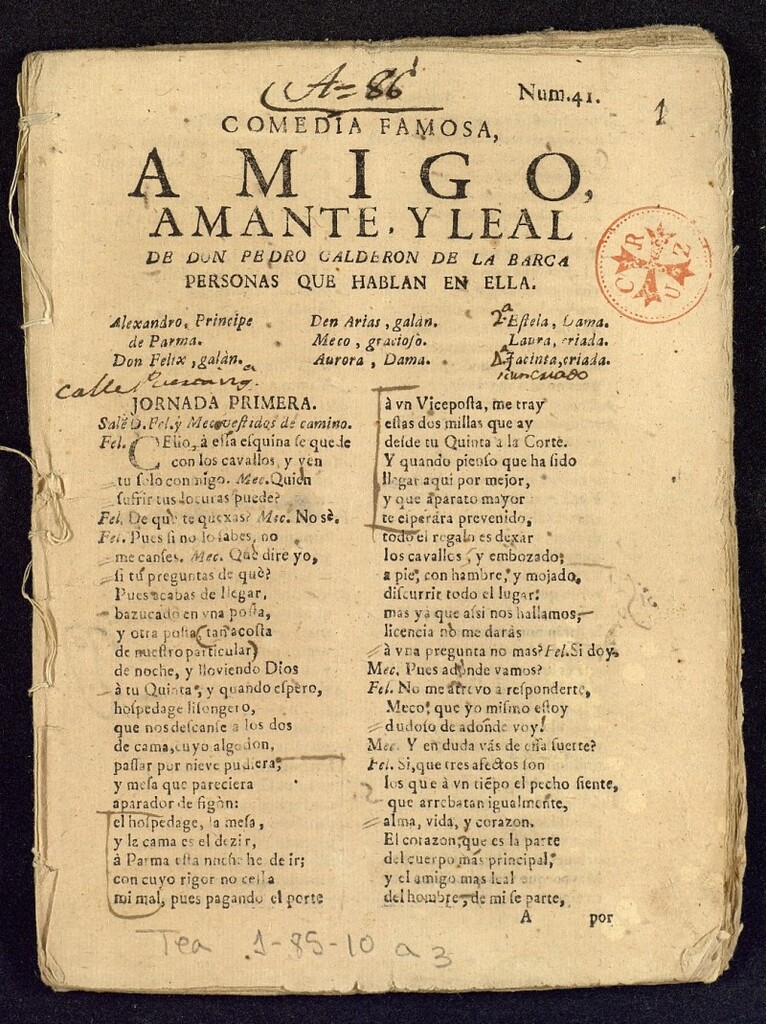 A=86
Num.41.
1
COMEDIA FAMOSA,
AMIGO,
AMANTE, Y LEAL
DE DON PEDRO CALDERON DE LA BARCA
PERSONAS QUE HABLAN EN ELLA.
Alexandro, Principe
de Parma.
Don Felix, galàn.
Den Arias, galàn.
Meco, gracioſo.
Aurora, Dama.
2ª Eſtela, Dama.
Laura, criada.
Jacinta, criada.
CRUZ
Calle
JORNADA PRIMERA.
Sale D. Fel. y Meco veſtidos de camino.
Fel. CElio, à eſſa eſquina ſe quede
con los cavallos, y ven
tu ſolo conmigo. Mec. Quien
ſufrir tus locuras puede?
Fel. De què te quexas? Mec. No sè.
Fel. Pues ſi no lo ſabes, no
me canſes. Mec. Què dire yo,
ſi tu preguntas de què?
Pues acabas de llegar,
bazucado en vna poſta,
y otra poſta (tan acoſta
de nueſtro particular)
de noche, y lloviendo Dios
à tu Quinta, y quando eſpero,
hoſpedage liſongero,
que nos deſcanſe a los dos
de cama, cuyo algodon,
paſſar por nieve pudiera,
y meſa que pareciera
aparador de figòn:
el hoſpedage, la meſa,
y la cama es el dezir,
à Parma eſta noche he de ir;
con cuyo rigor no ceſſa
mi mal, pues pagando el porte
à vn Vicepoſta, me tray
eſtas dos millas que ay
deſde tu Quinta a la Corte.
Y quando pienſo que ha ſido
llegar aqui por mejor,
y que aparato mayor
te eſperàra prevenido,
todo el regalo es dexar
los cavallos, y embozado,
a pie, con hambre, y mojado,
diſcurrir todo el lugar:
mas yà que aſsi nos hallamos,
licencia no me daràs
à vna pregunta no mas? Fel. Si doy.
Mec. Pues adonde vamos?
Fel. No me atrevo a reſponderte,
Meco, que yo miſmo eſtoy
dudoſo de adonde voy.
Mec. Y en duda vàs de eſſa ſuerte?
Fel. Si, que tres afectos ſon
los que à vn tiẽpo el pecho ſiente,
que arrebatan igualmente,
alma, vida, y corazon.
El corazon, que es la parte
del cuerpo mas principal,
y el amigo mas leal
del hombre, de mi ſe parte,
A por
Tea 1-85-10 a 3